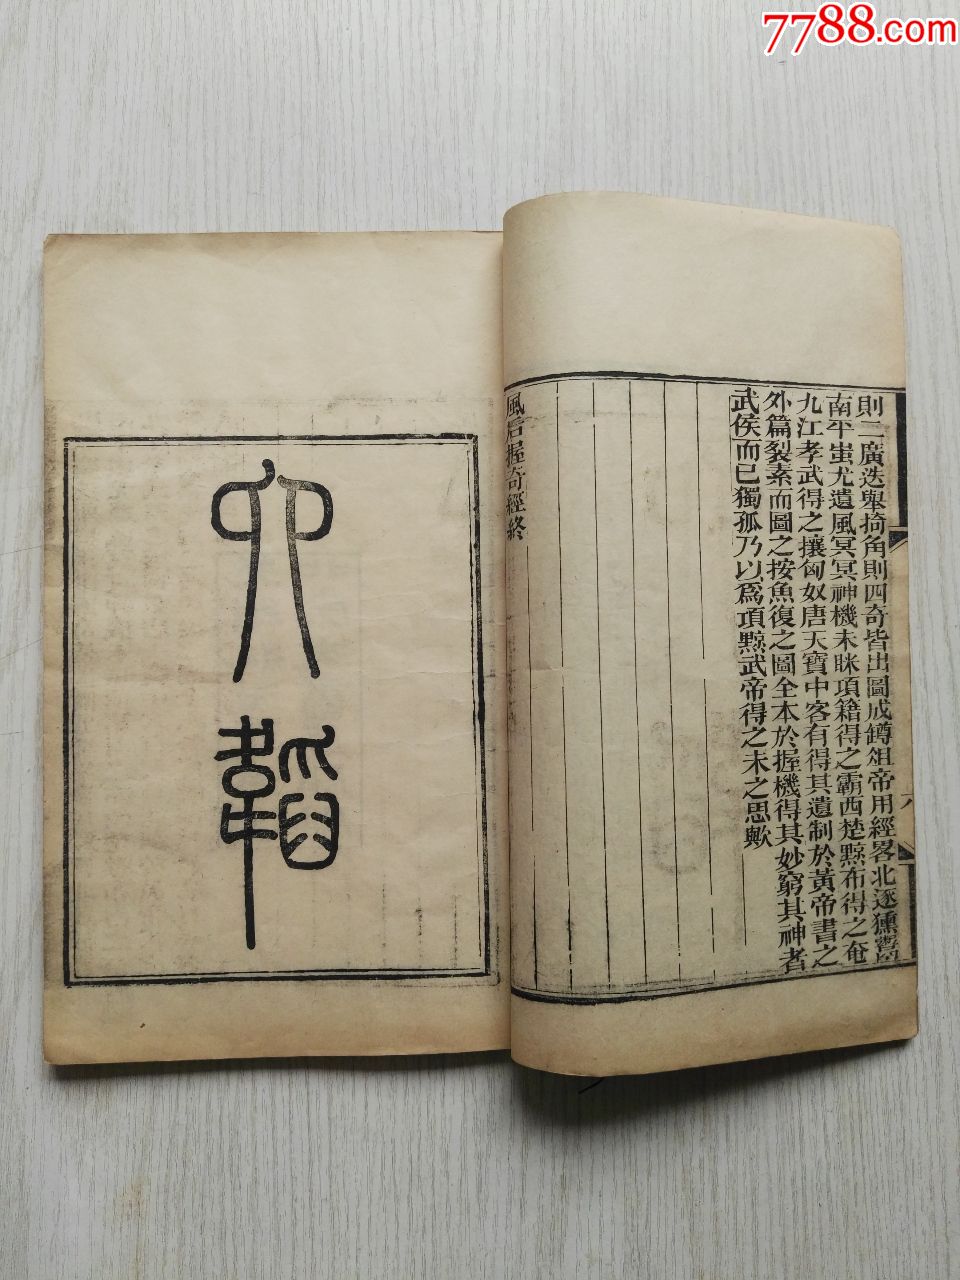 7788.com
則二廣迭舉掎角則四奇皆出圖成鐏俎帝用經畧北逐獯鬻
南平蚩尤遺風冥冥神機未昧項籍得之霸西楚黥布得之奄
九江孝武得之攘匈奴唐天寶中客有得其遺制於黃帝書之
外篇裂素而圖之按魚復之圖全本於握機得其妙窮其神者
武侯而已獨孤乃以爲項黥武帝得之未之思歟
風后握奇經終
六韜